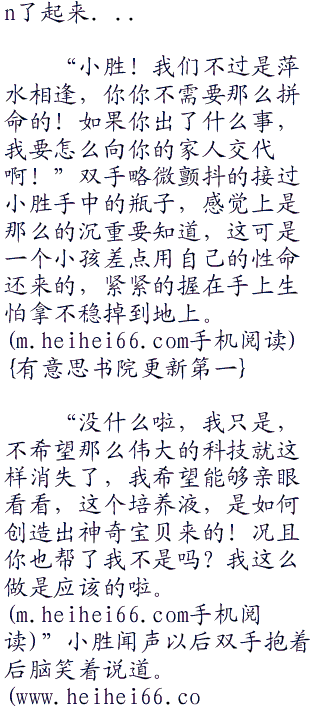 n了起来．．．
“小胜！我们不过是萍
水相逢，你你不需要那么拼
命的！如果你出了什么事，
我要怎么向你的家人交代
啊！”双手略微颤抖的接过
小胜手中的瓶子，感觉上是
那么的沉重要知道，这可是
一个小孩差点用自己的性命
还来的，紧紧的握在手上生
怕拿不稳掉到地上。
(m.heihei66.com手机阅读)
{有意思书院更新第一}
“没什么啦，我只是，
不希望那么伟大的科技就这
样消失了，我希望能够亲眼
看看，这个培养液，是如何
创造出神奇宝贝来的！况且
你也帮了我不是吗？我这么
做是应该的啦。
(m.heihei66.com手机阅
读)”小胜闻声以后双手抱着
后脑笑着说道。
(www.heihei66.co